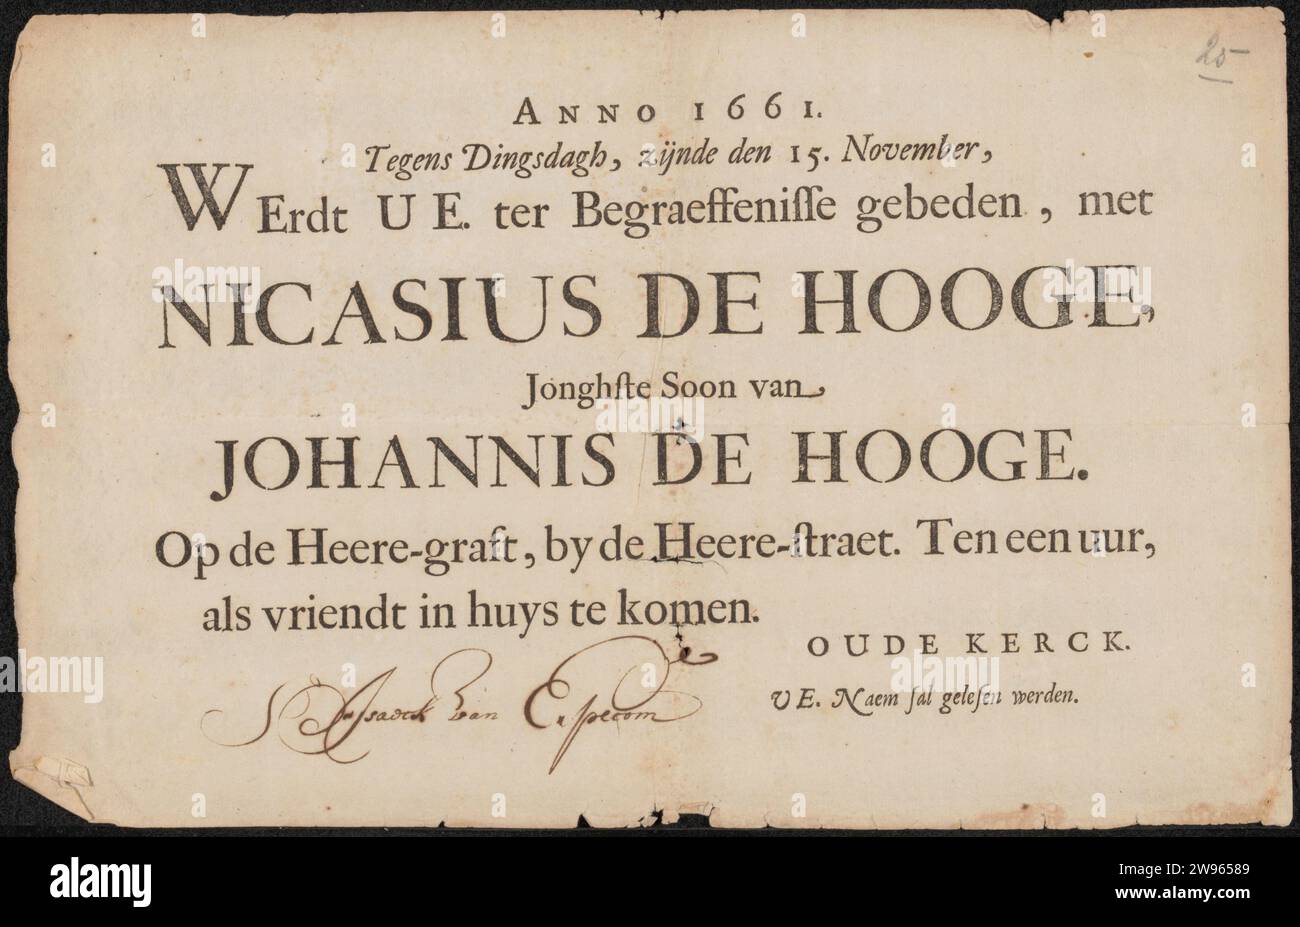 25
ANNO 1661.
Tegens Dingsdagh, zijnde den 15. November,
WErdt UE. ter Begraeffeniſſe gebeden, met
NICASIUS DE HOOGE,
Jonghſte Soon van
JOHANNIS DE HOOGE.
Op de Heere-graft, by de Heere-ſtraet. Ten een uur,
als vriendt in huys te komen.
OUDE KERCK.
UE. Naem ſal geleſen werden.
Isaack van
alamy
Image ID: 2W96589
www.alamy.com